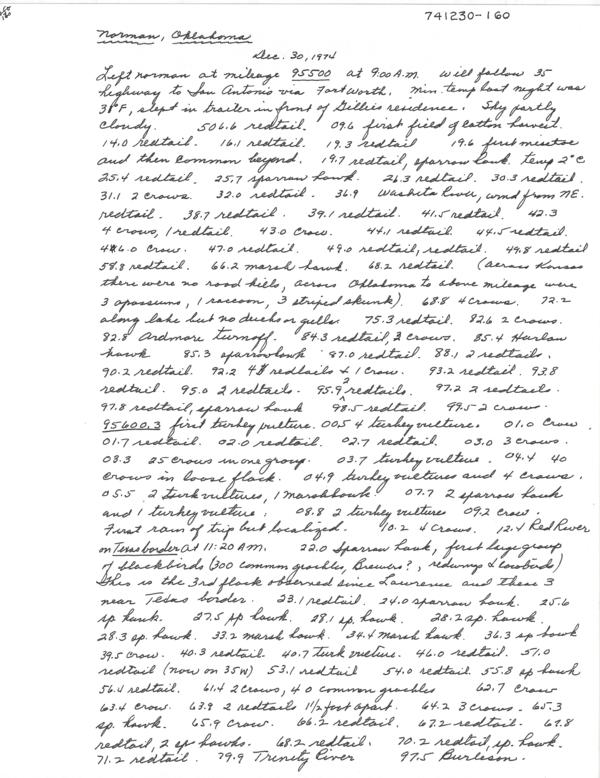 741230-160
Norman, Oklahoma
Dec. 30, 1974
Left norman at mileage 95500 at 9:00 A.M. will follow 35
highway to San Antonio via Fort Worth. Min. temp last night was
38°F, slept in trailer in front of Gillis residence. Sky partly
cloudy. 506.6 redtail. 09.6 first field of cotton harvest.
14.0 redtail. 16.1 redtail. 19.3 redtail 19.6 first misetoe
and then common beyond. 19.7 redtail, sparrow hawk. temp 2°C
25.4 redtail. 25.7 sparrow hawk. 26.3 redtail. 30.3 redtail.
31.1 2 crows. 32.0 redtail. 36.9 Washita River, wind from NE.
redtail. 38.7 redtail. 39.1 redtail. 41.5 redtail. 42.3
4 crows, 1 redtail. 43.0 crow. 44.1 redtail. 44.5 redtail.
46.0 crow. 47.0 redtail. 49.0 redtail, redtail. 49.8 redtail
58.8 redtail. 66.2 marsh hawk. 68.2 redtail. (across Kansas
there were no road kills, across Oklahoma to above mileage were
3 opossums, 1 raccoon, 3 striped skunk). 68.8 4 crows. 72.2
along lake but no ducks or gulls. 75.3 redtail. 82.6 2 crows.
82.8 Ardmore turnoff. 84.3 redtail, 2 crows. 85.4 Harlan
hawk 85.3 sparrowhawk 87.0 redtail. 88.1 2 redtails.
90.2 redtail. 92.2 4 redtails & 1 crow. 93.2 redtail. 93.8
redtail. 95.0 2 redtails. 95.9 2 redtails. 97.2 2 redtails
97.8 redtail, sparrow hawk 98.5 redtail. 99.5 2 crows.
95600.3 first turkey vulture. 00.5 4 turkey vultures. 01.0 crow.
01.7 redtail. 02.0 redtail. 02.7 redtail. 03.0 3 crows.
03.3 25 crows in one group. 03.7 turkey vulture. 04.4 40
crows in loose flock. 04.9 turkey vultures and 4 crows.
05.5 2 turk vultures, 1 marsh hawk. 07.7 2 sparrow hawk
and 1 turkey vulture. 08.8 2 turkey vultures 09.2 crow.
First rain of trip but localized. 10.2 4 crows. 12.4 Red River
on Texas border at 11:20 A.M. 22.0 Sparrow hawk, first large group
of blackbirds (300 common grackles, Brewers?, redwings & cowbirds)
This is the 3rd flock observed since Lawrence and these 3
near Texas border. 23.1 redtail. 24.0 sparrow hawk. 25.6
sp. hawk. 27.5 sp hawk. 28.1 sp. hawk. 28.2 sp. hawk.
28.3 sp. hawk. 33.2 marsh hawk. 34.4 marsh hawk. 36.3 sp hawk
39.5 crow. 40.3 redtail. 40.7 turk vulture. 46.0 redtail. 51.0
redtail (now on 35W) 53.1 redtail 54.0 redtail. 55.8 sp hawk
56.4 redtail. 61.4 2 crows, 40 common grackles 62.7 crow
63.4 crow. 63.9 2 redtails 1 1/2 foot apart. 64.2 3 crows. 65.3
sp. hawk. 65.9 crow. 66.2 redtail. 67.2 redtail. 67.8
redtail, 2 sp hawks. 68.2 redtail. 70.2 redtail, sp. hawk.
71.2 redtail. 79.9 Trinity River 97.5 Burleson.